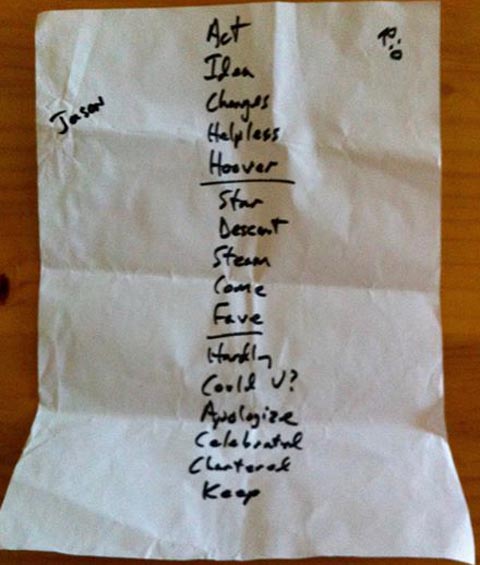 Act
Idea
Changes
Helpless
Hoover
Jason
Star
Descent
Steam
Come
Fave
Hardly
Could U?
Apologize
Celebrated
Chartered
Keep